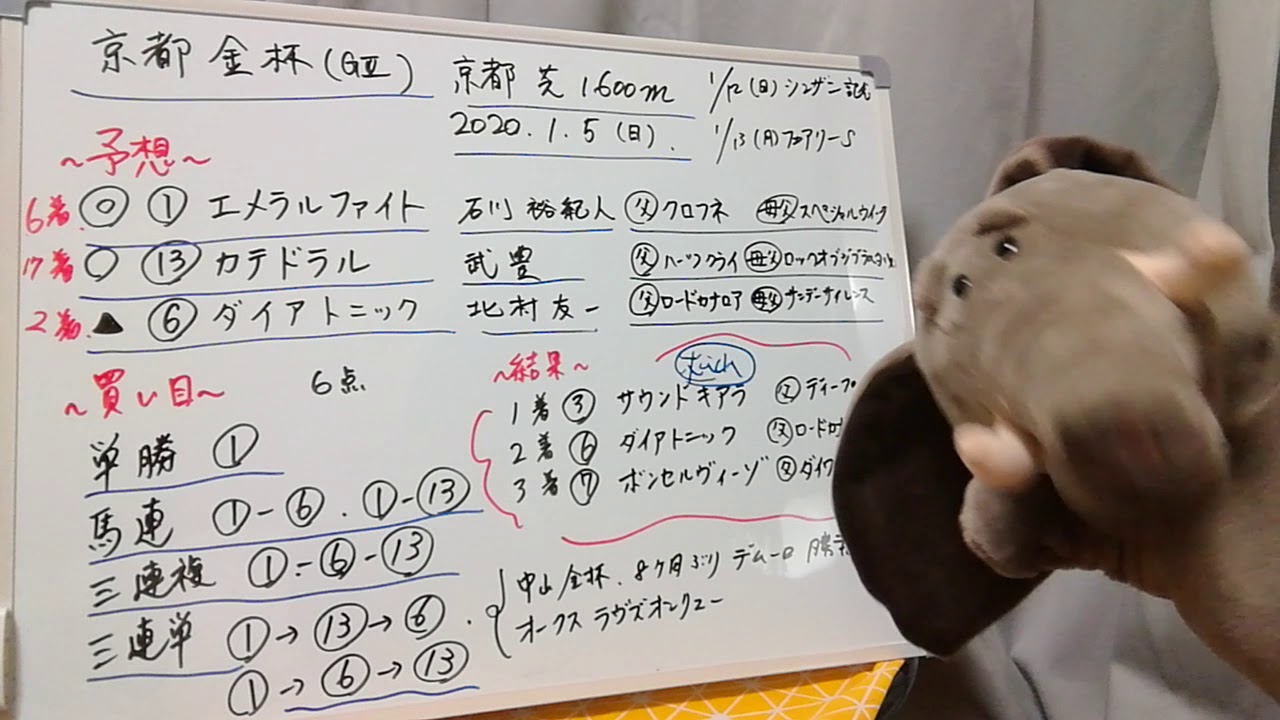 京都金杯(GⅢ) 京都 芝1600m 1/12(日)シンザン記念
2020.1.5(日). 1/13(月)フェアリーS
~予想~
6着 ◎ ① エメラルファイト 石川裕紀人 父クロフネ 母父スペシャルウイーク
17着 ○ ⑬ カテドラル 武豊 父ハーツクライ 母父ロックオブジブラルタル
2着 ▲ ⑥ ダイアトニック 北村友一 父ロードカナロア 母父サンデーサイレンス
~買い目~ 6点
単勝 ①
馬連 ①-⑥.①-⑬
三連複 ①-⑥-⑬
三連単 ①→⑬→⑥.
①→⑥→⑬
~結果~
1着③ サウンドキアラ 父ディープ
2着⑥ ダイアトニック 父ロードカ
3着⑦ ボンセルヴィーゾ 父ダイワ
中山金杯.8ヶ月ぶり デムーロ 勝
オークス ラヴズオンリュー